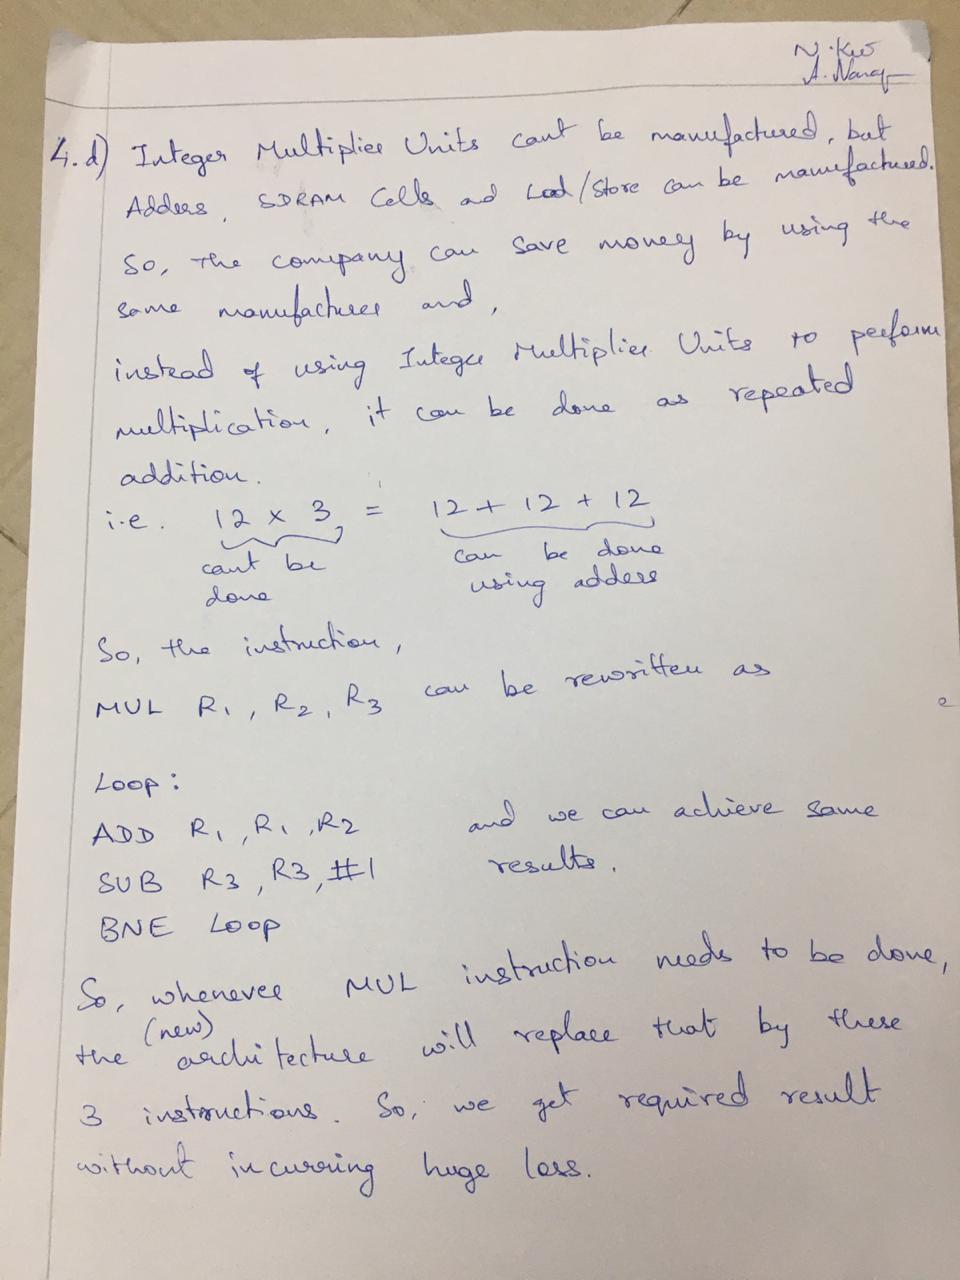 N.
A.
4.d) Integer Multiplier Units cant be manufactured, but
Adders, SDRAM Cells and Load/Store can be manufactured.
So, the company can save money by using the
same manufacturer and,
instead of using Integer Multiplier Units to perform
multiplication, it can be done as repeated
addition.
i.e. 12 x 3 = 12 + 12 + 12
cant be done
can be done using adders
So, the instruction,
MUL R1, R2, R3 can be rewritten as
Loop:
ADD R1, R1, R2 and we can achieve same
SUB R3, R3, #1 results.
BNE Loop
So, whenever MUL instruction needs to be done,
the (new) architecture will replace that by these
3 instructions. So, we get required result
without incurring huge loss.